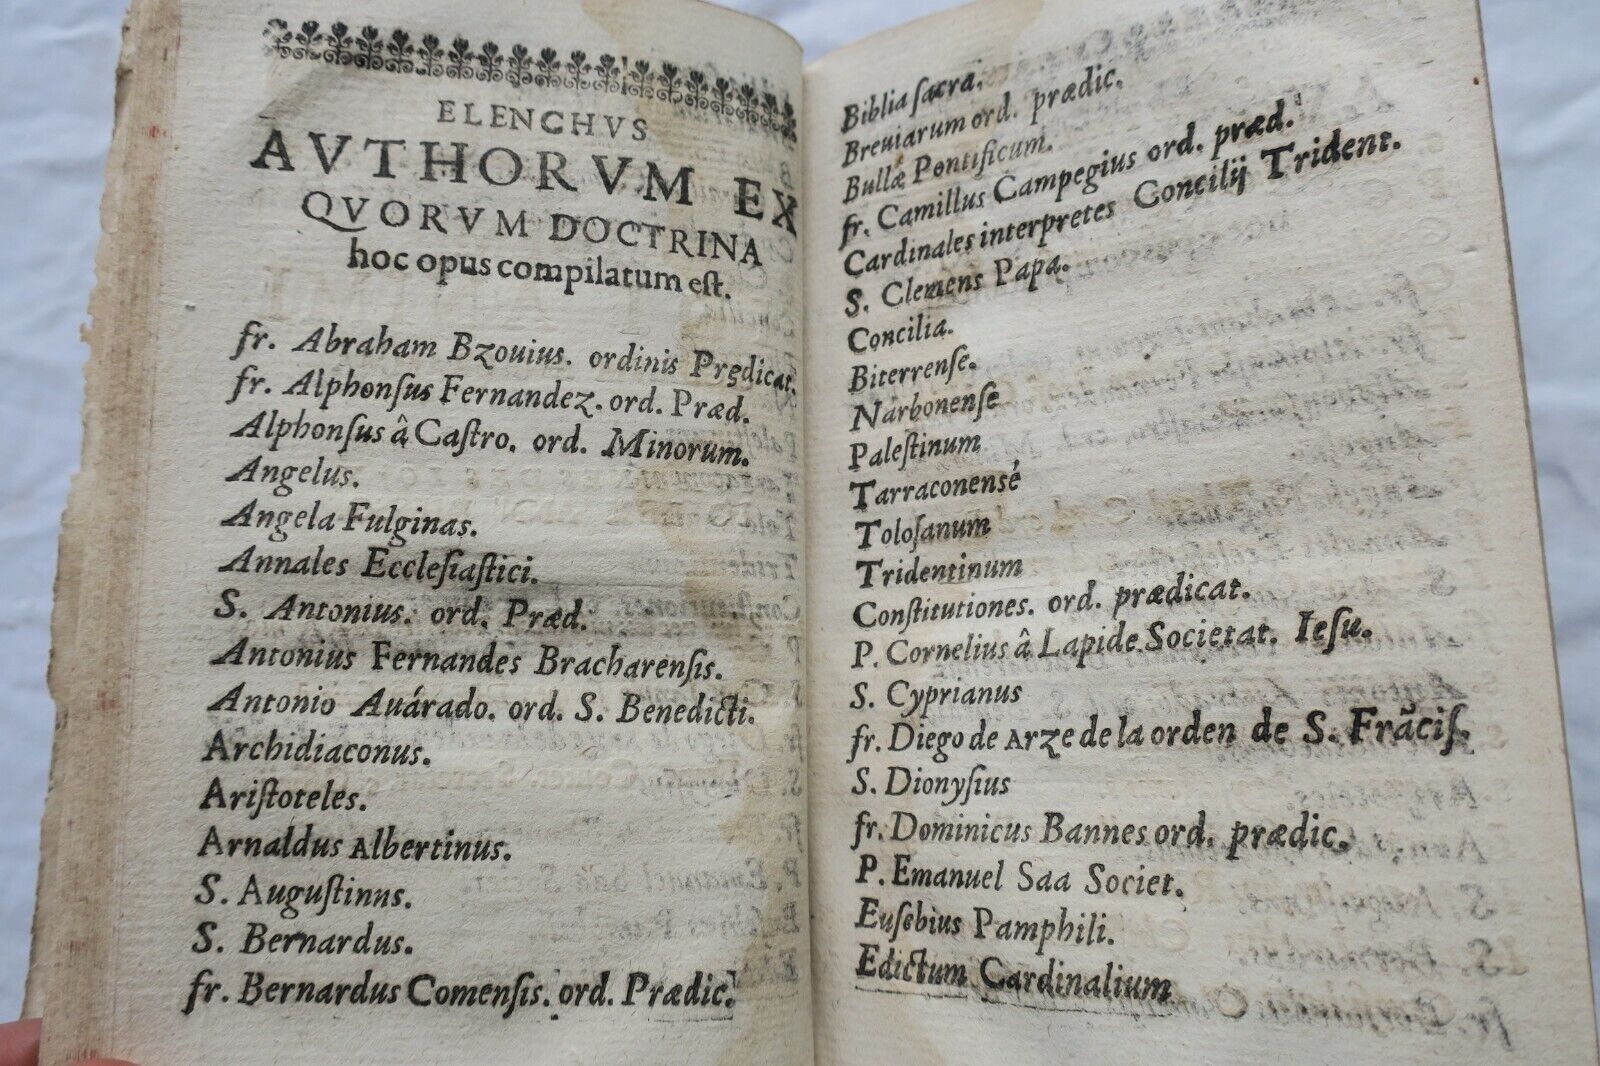 ELENCHVS
AVTHORVM EX
QVORVM DOCTRINA
hoc opus compilatum eſt.
fr. Abraham Bzouius. ordinis Prędicat.
fr. Alphonſus Fernandez. ord. Præd.
Alphonſus â Caſtro. ord. Minorum.
Angelus.
Angela Fulginas.
Annales Eccleſiaſtici.
S. Antonius. ord. Præd.
Antonius Fernandes Bracharenſis.
Antonio Auárado. ord. S. Benedicti.
Archidiaconus.
Ariſtoteles.
Arnaldus Albertinus.
S. Auguſtinus.
S. Bernardus.
fr. Bernardus Comenſis. ord. Prædic.
Biblia ſacra.
Breuiarum ord. prædic.
Bullę Pontificum.
fr. Camillus Campegius ord. præd.
Cardinales interpretes Concilij Trident.
S. Clemens Papa.
Concilia.
Biterrenſe.
Narbonenſe
Paleſtinum
Tarraconensé
Toloſanum
Tridentinum
Conſtitutiones. ord. prædicat.
P. Cornelius â Lapide Societat. Ieſu.
S. Cyprianus
fr. Diego de Arze de la orden de S. Frãciſ.
S. Dionyſius
fr. Dominicus Bannes ord. prædic.
P. Emanuel Saa Societ.
Euſebius Pamphili.
Edictum Cardinalium